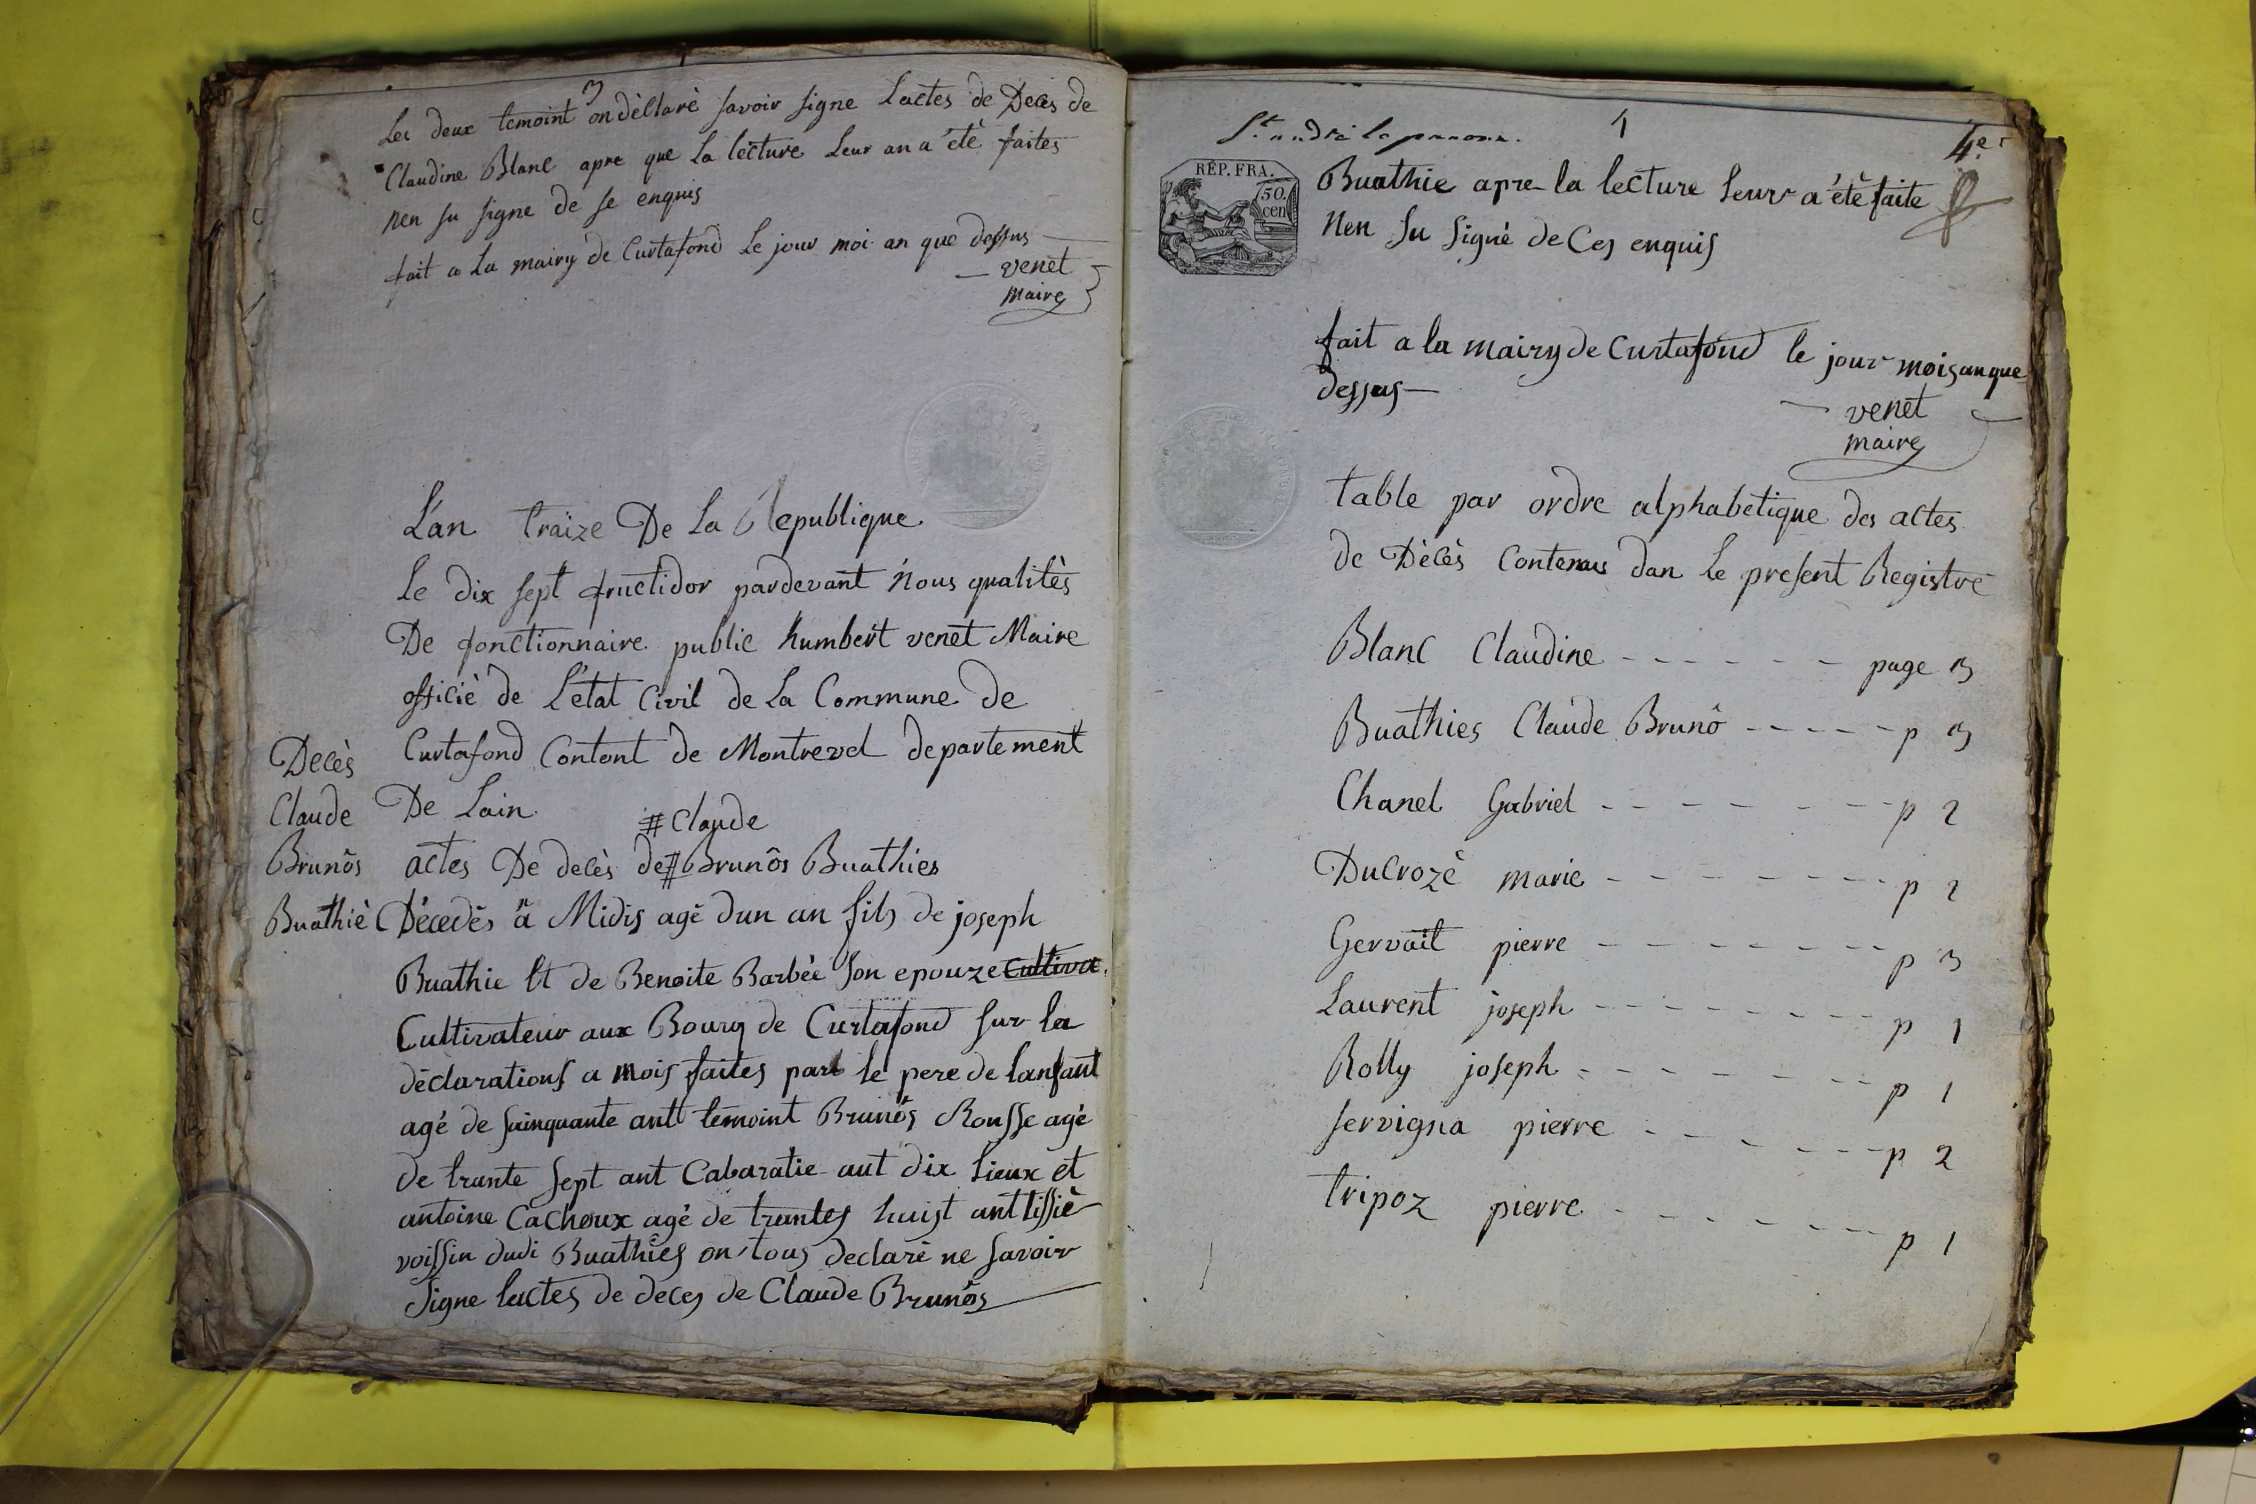 3
Les deux temoint on dèclarè savoir signe Lactes de Decès de
Claudine Blanc apre que La lecture Leur an a étè faites
nen su signe de se enquis
fait a La mairy de Curtafond Le jour moi an que dessus
venet
maire
L'an traize De La Republique
Le dix sept fructidor pardevant Nous qualitès
De fonctionnaire public humbert venet Maire
officiè de L'état Civil de La Commune de
Curtafond Contont de Montrevel departement
De Lain
# Claude
actes De decès de # Brunôs Buathies
Dècedès â Midis agé dun an fils de joseph
Buathie Et de Benoite Barbèe son epouze Cultiva
Cultivateur aux Bourg de Curtafond sur la
dèclarations a mois faites part le pere de lanfant
agé de sainquante antt temoint Brunôs Rousse agé
de trante sept ant Cabaratie aut dix lieux et
antoine Cachoux agé de trantes huist ant tissiè
voissin dudi Buathies on tous declarè ne savoir
signe lactes de deces de Claude Brunôs
Decès
Claude
Brunôs
Buathiè
4
St andré le
4e
RÉP. FRA.
50.
cen
Buathie apre la lecture leur a étè faite
Nen su signè de Ces enquis
fait a la mairy de Curtafond le jour mois an que
dessus
venet
maire
table par ordre alphabetique des actes
de Dècès Contenus dan Le present Registre
Blanc Claudine - - - - - - page 3
Buathies Claude Brunô - - - - - p 3
Chanel Gabriel - - - - - - - p 2
DuCrozè marie - - - - - - - p 2
Gervait pierre - - - - - - - p 3
Laurent joseph - - - - - - - p 1
Rolly joseph - - - - - - - p 1
servigna pierre - - - - - - p 2
tripoz pierre - - - - - - p 1